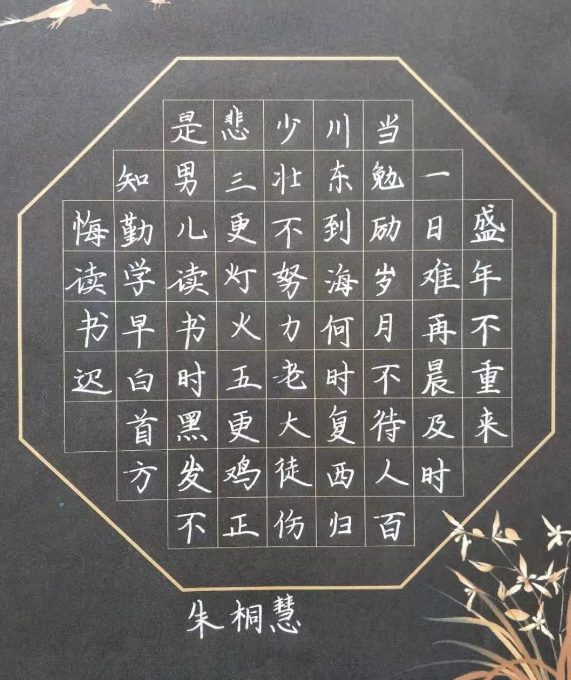 盛年不重来
一日难再晨及时
当勉励岁月不待人百
川东到海何时复西归
少壮不努力老大徒伤
悲三更灯火五更鸡正
是男儿读书时黑发不
知勤学早白首方
悔读书迟
朱桐慧